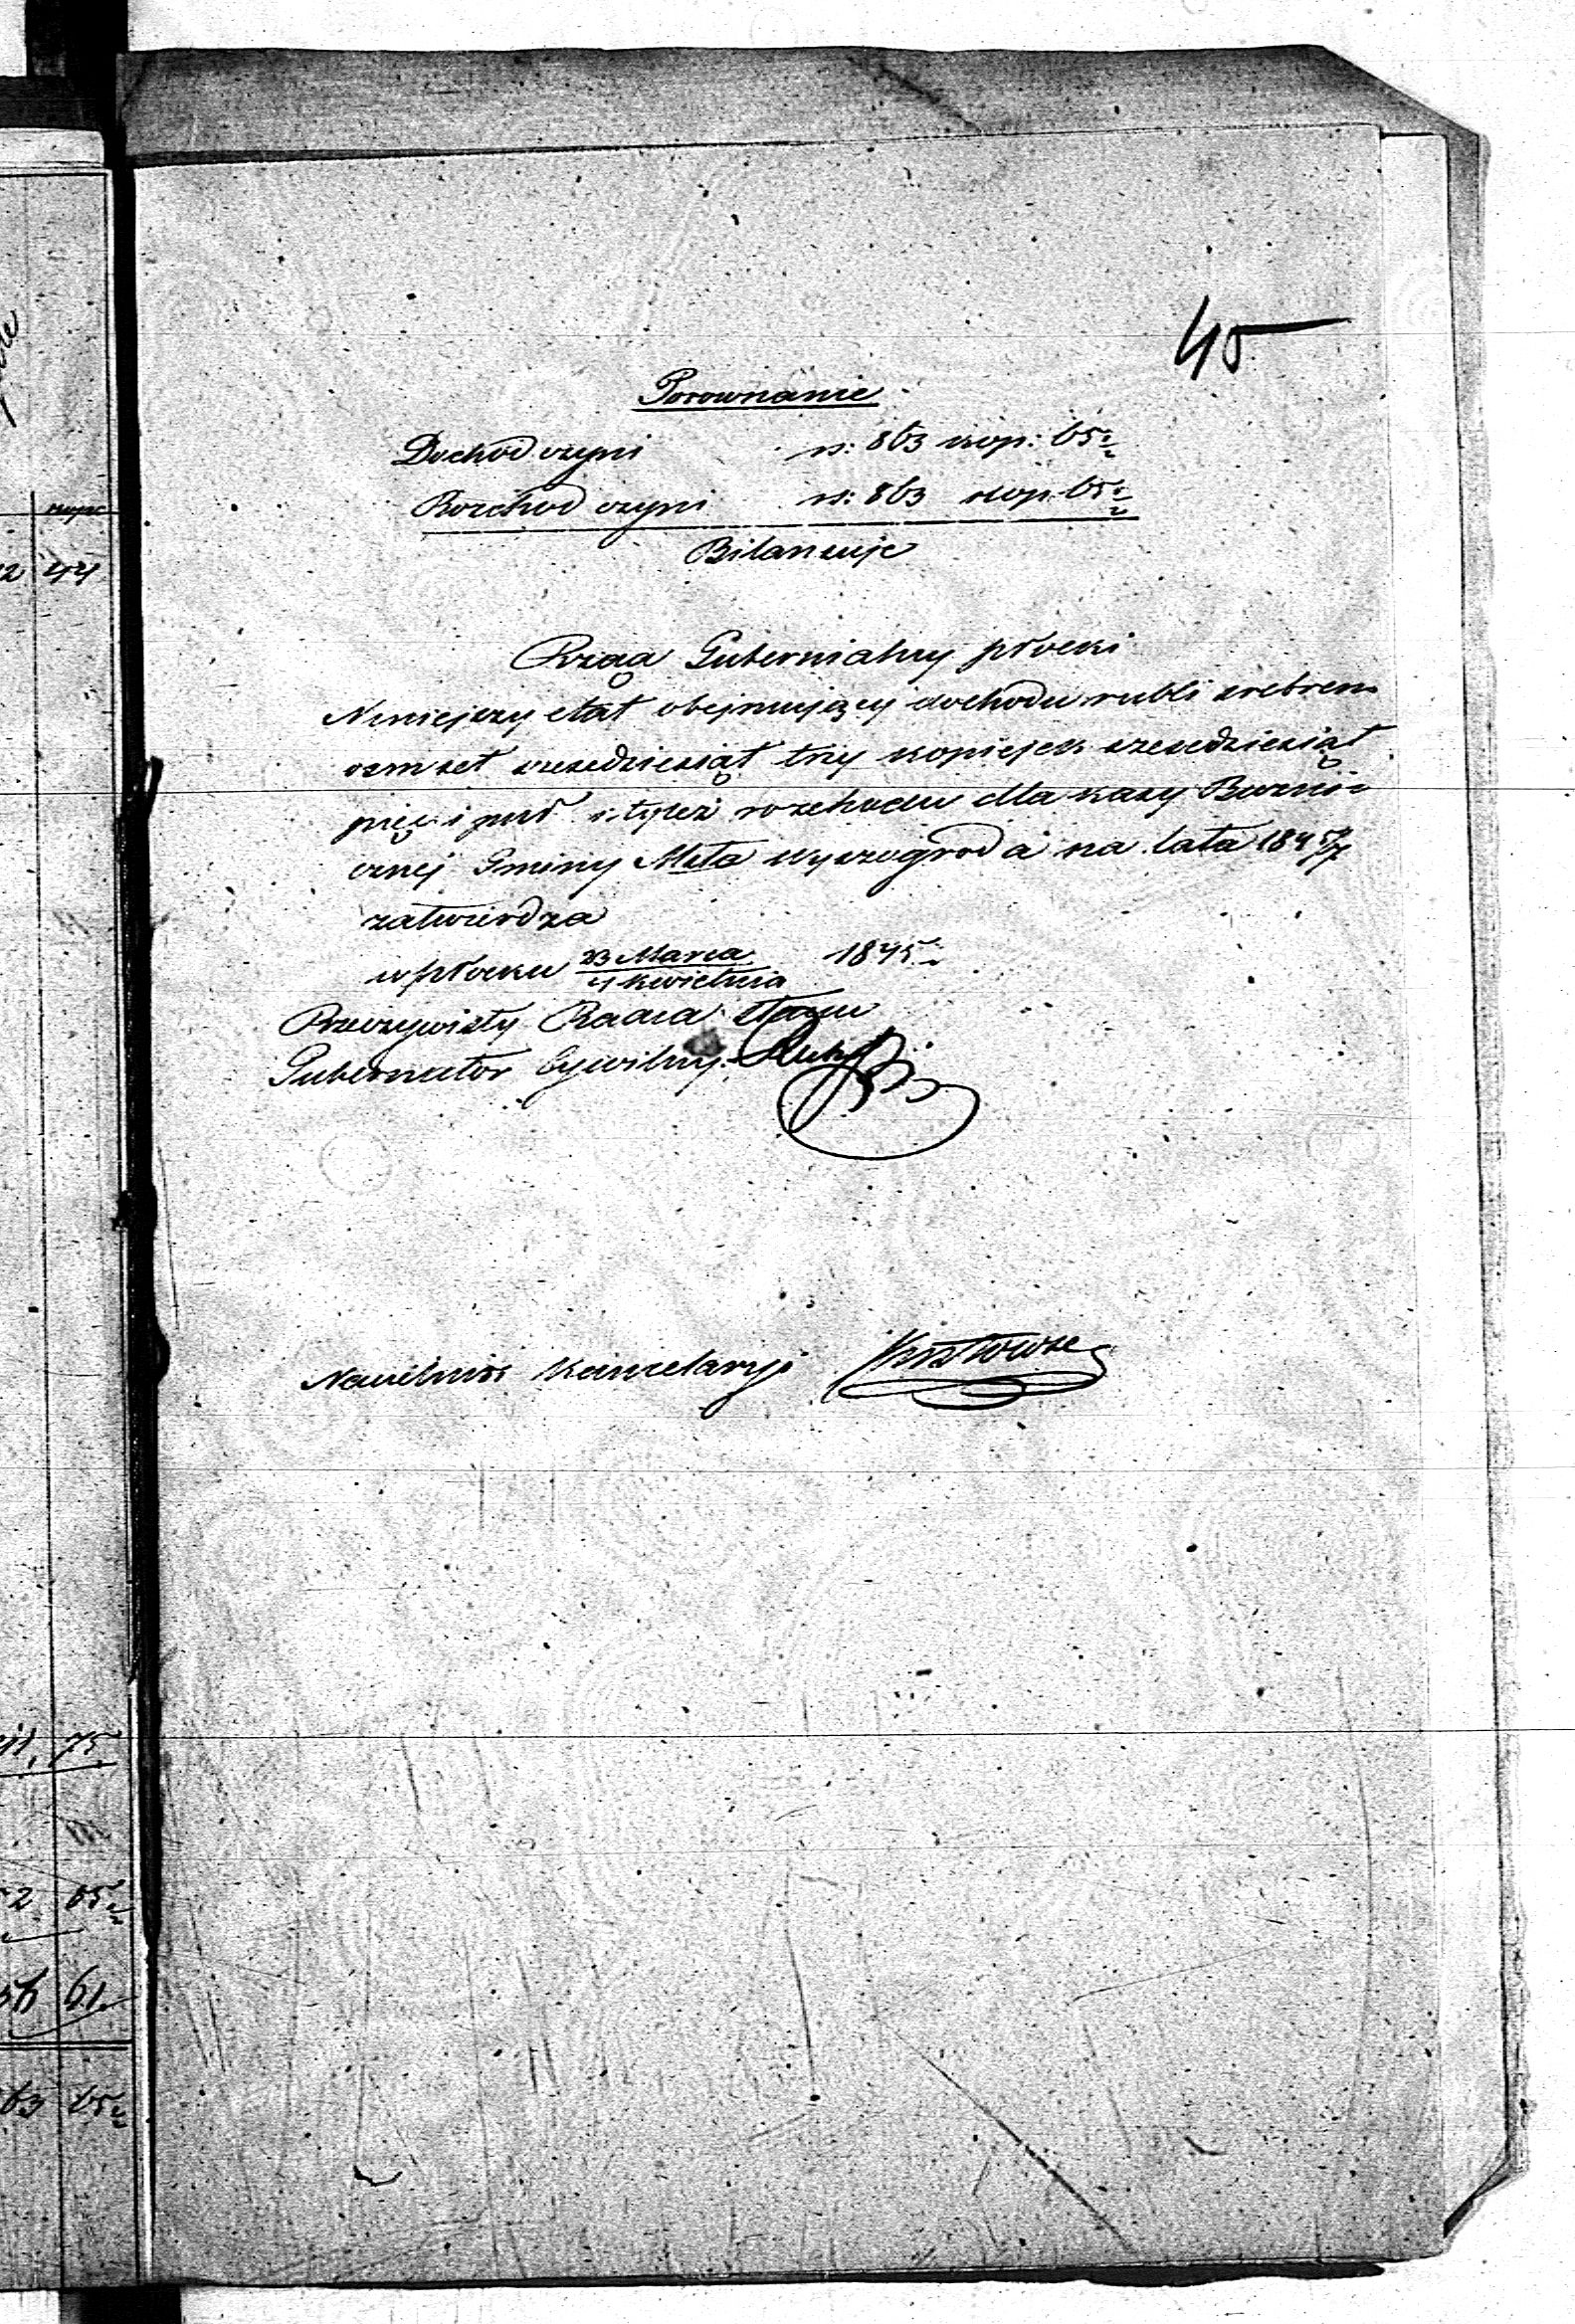 45
Porownanie
Dochod czyni rs: 863 kop: 65½
Rozchod czyni rs: 863 kop. 65½
Bilansuje
Rząd Gubernialny płocki
Niniejszy etat obejmujący dochodu rubli srebrem
osmset szesedziesiąt trzy kopiejek szesedziesiąt
pięć i puł i tyleż rozchodu dla kasy Bozni=
cznej Gminy Mta Wyszogroda na lata 1845/7
zatwierdza
w płocku 23 Marca / 4 Kwietnia 1845
Rzeczywisty Radca Stanu
Gubernator Cywilny
Naczelnik Kancelaryi
kope
2 44
41, 75
52 65½
56 61
63 65½